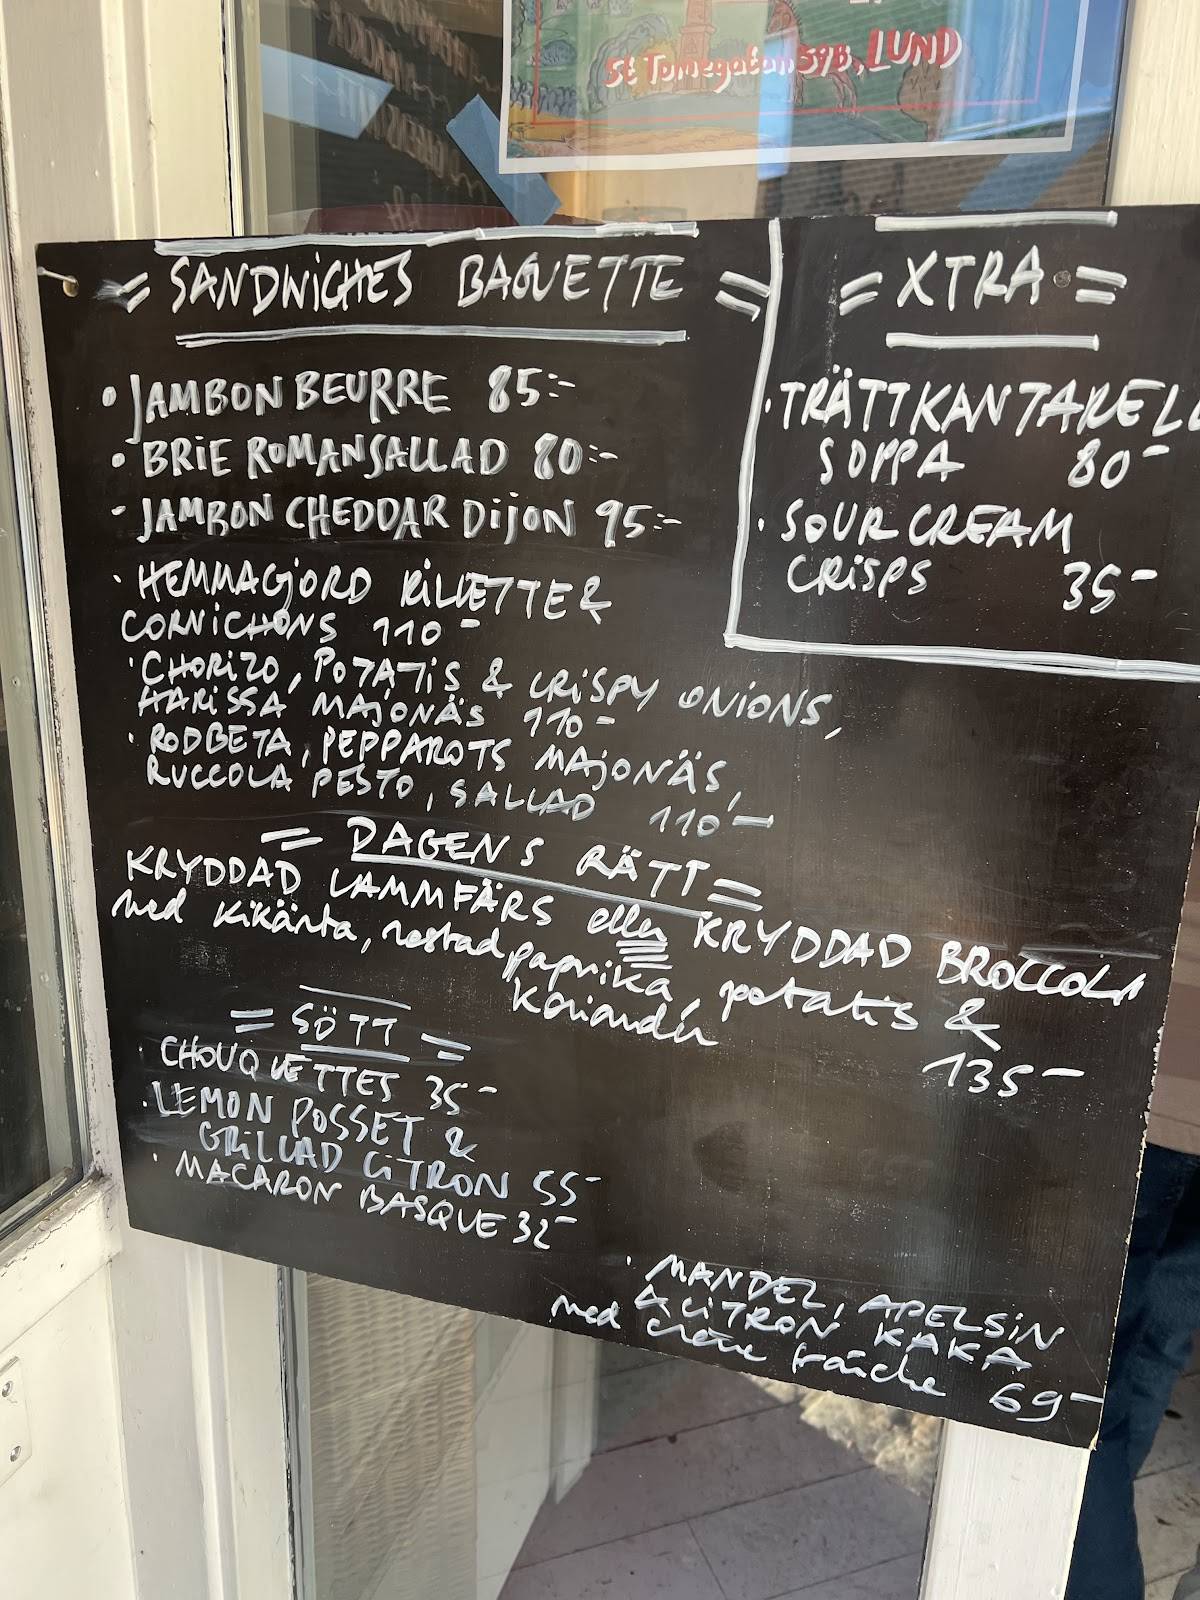 St Tomegatan 39B, LUND
= SANDWICHES BAGUETTE =
• JAMBON BEURRE 85:-
• BRIE ROMANSALLAD 80:-
- JAMBON CHEDDAR DIJON 95:-
• HEMMAGJORD RILLETTE &
CORNICHONS 110-
• CHORIZO, POTATIS & CRISPY ONIONS,
HARISSA MAJONÄS 110-
• RÖDBETA, PEPPAROTS MAJONÄS,
RUCCOLA PESTO, SALLAD 110-
= DAGENS RÄTT =
KRYDDAD LAMMFÄRS eller KRYDDAD BROCCOLI
med kikärta, rostad paprika, potatis &
koriander
135-
= SÖTT =
• CHOUQUETTES 35-
• LEMON POSSET &
GRILLAD CITRON 55-
• MACARON BASQUE 32-
• MANDEL, APELSIN
& CITRON KAKA
med crème fraiche 69-
= XTRA =
• TRÄTTKANTARELL
SOPPA 80-
• SOUR CREAM
CRISPS 35-